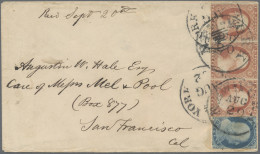 Recd Sept 20th
Augustus W. Hale Esq
Care of Messrs Mel & Pool
(Box 877)
San Francisco
Cal
YORK
YORK
AUG